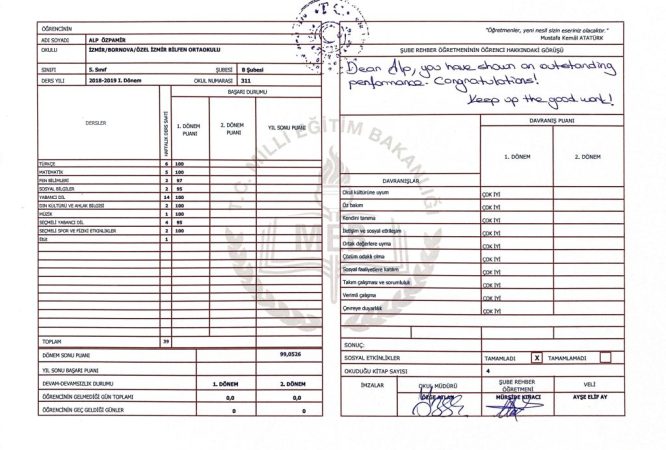 ÖĞRENCİNİN
ADI SOYADI ALP ÖZPAMİR
OKULU İZMİR/BORNOVA/ÖZEL İZMİR BİLFEN ORTAOKULU
SINIFI 5. Sınıf ŞUBESİ B Şubesi
DERS YILI 2018-2019 I. Dönem OKUL NUMARASI 311
BAŞARI DURUMU
DERSLER HAFTALIK DERS SAATİ 1. DÖNEM PUANI 2. DÖNEM PUANI YIL SONU PUANI
TÜRKÇE 6 100
MATEMATİK 5 100
FEN BİLİMLERİ 2 97
SOSYAL BİLGİLER 2 95
YABANCI DİL 14 100
DİN KÜLTÜRÜ VE AHLAK BİLGİSİ 2 100
MÜZİK 1 100
SEÇMELİ YABANCI DİL 4 95
SEÇMELİ SPOR VE FİZİKİ ETKİNLİKLER 2 100
Etüt 1
TOPLAM 39
DÖNEM SONU PUANI 99,0526
YIL SONU BAŞARI PUANI
DEVAM-DEVAMSIZLIK DURUMU 1. DÖNEM 2. DÖNEM
ÖĞRENCİNİN GELMEDİĞİ GÜN TOPLAMI 0,0 0,0
ÖĞRENCİNİN GEÇ GELDİĞİ GÜNLER 0 0
T.C. MİLLİ EĞİTİM BAKANLIĞI
MEB
"Öğretmenler, yeni nesil sizin eseriniz olacaktır."
Mustafa Kemâl ATATÜRK
ŞUBE REHBER ÖĞRETMENİNİN ÖĞRENCİ HAKKINDAKİ GÖRÜŞÜ
Dear Alp, you have shown an outstanding
performance. Congratulations!
Keep up the good work!
DAVRANIŞ PUANI
DAVRANIŞLAR 1. DÖNEM 2. DÖNEM
Okul kültürüne uyum ÇOK İYİ
Öz bakım ÇOK İYİ
Kendini tanıma ÇOK İYİ
İletişim ve sosyal etkileşim ÇOK İYİ
Ortak değerlere uyma ÇOK İYİ
Çözüm odaklı olma ÇOK İYİ
Sosyal faaliyetlere katılım ÇOK İYİ
Takım çalışması ve sorumluluk ÇOK İYİ
Verimli çalışma ÇOK İYİ
Çevreye duyarlılık ÇOK İYİ
SONUÇ:
SOSYAL ETKİNLİKLER TAMAMLADI X TAMAMLAMADI
OKUDUĞU KİTAP SAYISI 4
İMZALAR OKUL MÜDÜRÜ ŞUBE REHBER ÖĞRETMENİ VELİ
MÜRŞİDE KIRACI AYŞE ELİF AY